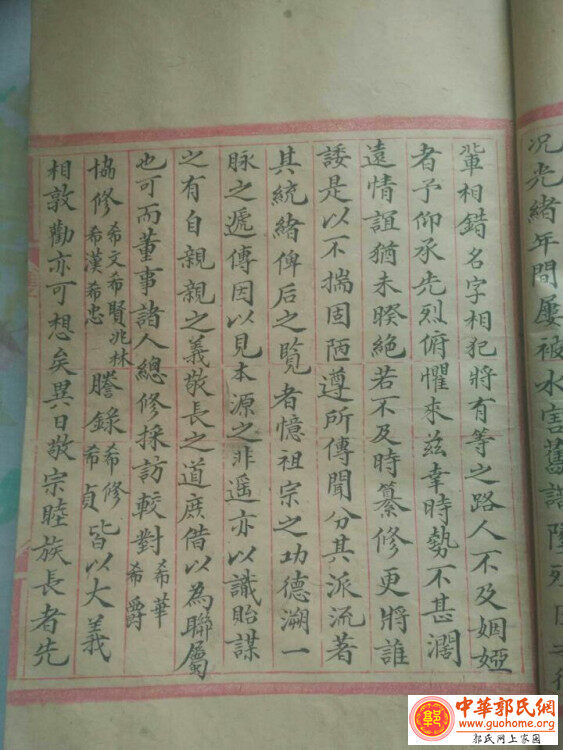 况光緒年間屢被水害舊譜
輩相錯名字相犯將有等之路人不及姻婭
者予仰承先烈俯懼來兹幸時勢不甚濶
遠情誼猶未暌絶若不及時纂修更將誰
諉是以不揣固陋遵所傳聞分其派流著
其統緒俾后之覧者憶祖宗之功德溯一
脉之遞傳因以見本源之非遥亦以識貽謀
之有自親親之義敬長之道庶借以為聯屬
也可而董事諸人總修採訪較對希華希爵
協修希文希賢兆林希漢希忠謄錄希修希貞皆以大義
相敦勸亦可想矣異日敬宗睦族長者先
郭
中華郭氏網
www.guohome.org
郭氏网上家园